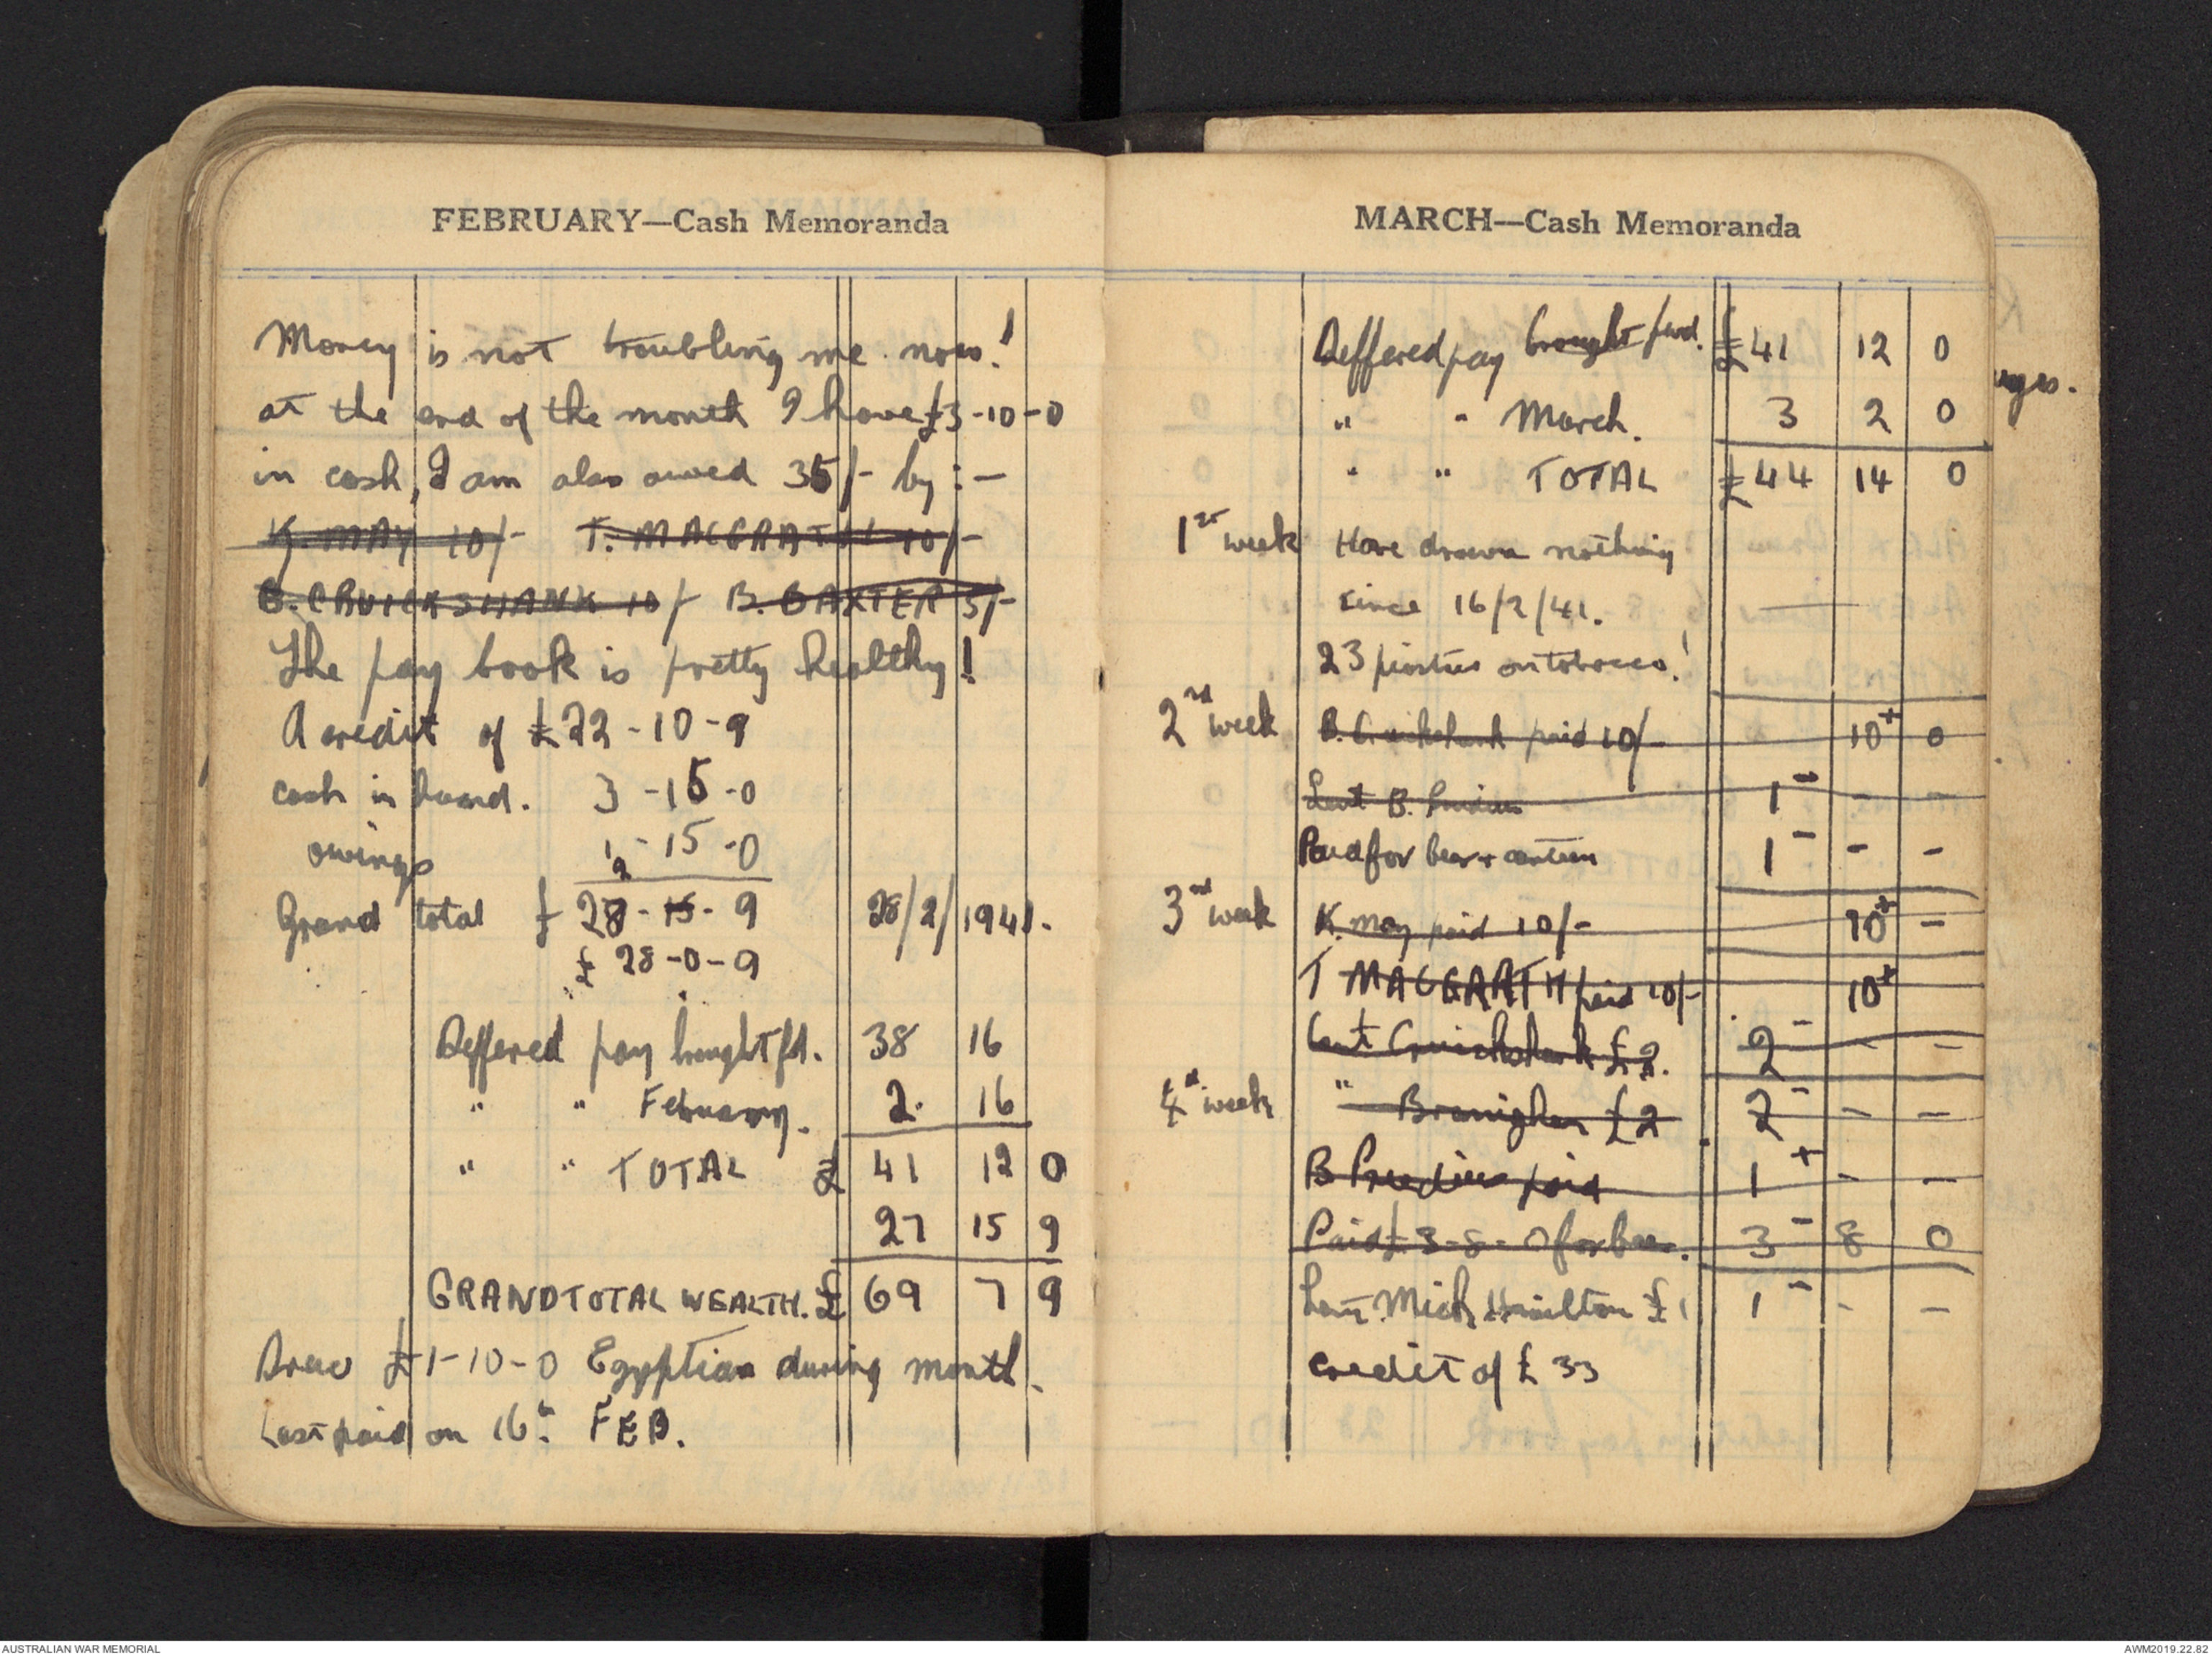 FEBRUARY—Cash Memoranda
Money is not troubling me now!
at the end of the month I have £3-10-0
in cash, I am also owed 35/- by :—
K. MAY 10/- T. MACGRATH 10/-
B. CRUICKSHANK 10/- B. BAXTER 5/-
The pay book is pretty healthy!
A credit of £22-10-9
cash in hand. 3-15-0
owings 1-15-0
Grand total £ 28-15-9 28/2/1941.
£ 28-0-9
Deffered pay brought fd. 38 16
" " February. 2. 16
" " TOTAL £ 41 12 0
27 15 9
GRANDTOTAL WEALTH. £ 69 7 9
Drew £1-10-0 Egyptian during month.
Last paid on 16th FEB.
MARCH—Cash Memoranda
Deffered pay brought fwd. £41 12 0
" " March. 3 2 0
" " TOTAL £44 14 0
1st week Have drawn nothing
since 16/2/41. —
23 piastres on tobacco!
2nd week B. Cruickshank paid 10/- 10+ 0
Lent B. 1- - -
Paid for beer + canteen 1- - -
3rd week K. May paid 10/- 10+ -
T MACGRATH paid 10/- 10+
Lent Cruickshank £2. 2- - -
4th week " Branighan £2 2- - -
B paid 1+ - -
Paid £3-8-0 for beer. 3- 8 0
Lent Mick Hamilton £1 1- - -
credit of £33
ages.
AUSTRALIAN WAR MEMORIAL
AWM2019.22.82